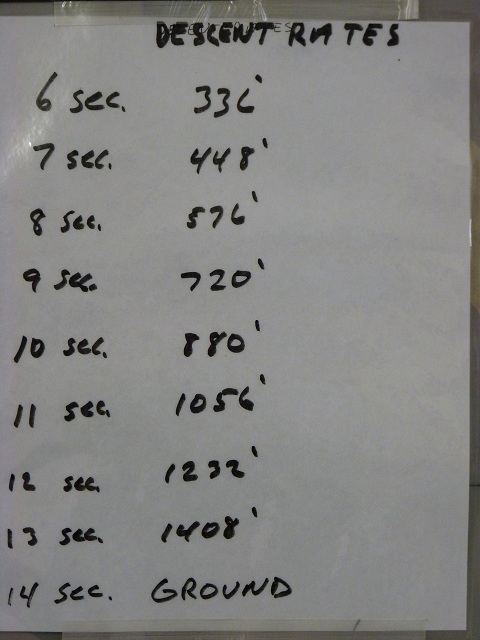 DESCENT RATES
6 sec. 336'
7 sec. 448'
8 sec. 576'
9 sec. 720'
10 sec. 880'
11 sec. 1056'
12 sec. 1232'
13 sec. 1408'
14 sec. GROUND